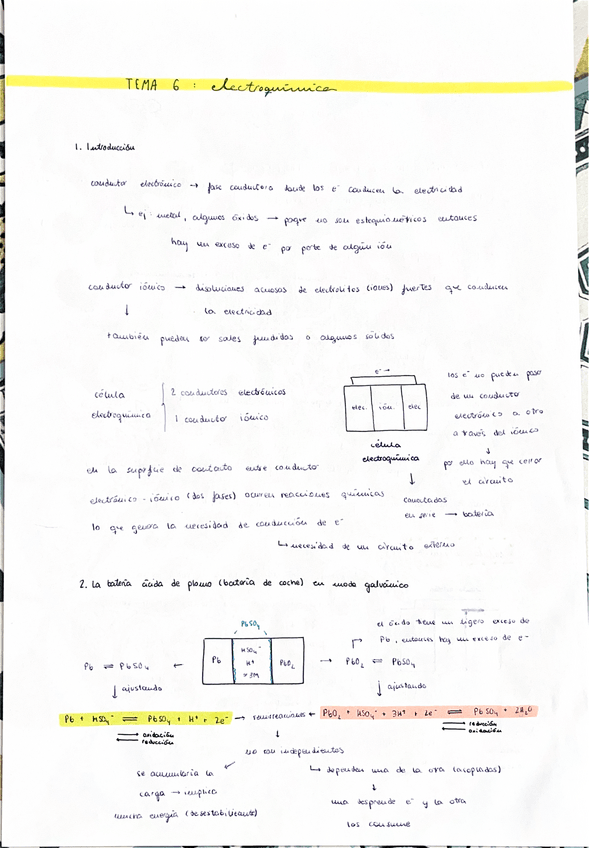 TEMA 6 : electroquímica
1. Introducción
conductor electrónico → fase conductora donde los e⁻ conducen la electricidad
↳ ej: metal, algunos óxidos → porque no son estequiométricos entonces
hay un exceso de e⁻ por parte de algún ión
conductor iónico → disoluciones acuosas de electrolitos (iones) fuertes que conducen
↓ la electricidad
también pueden ser sales fundidas o algunos sólidos
célula electroquímica
2 conductores electrónicos
1 conductor iónico
e⁻ →
elec. ión. elec
célula
electroquímica
↓
conectadas
en serie → batería
los e⁻ no pueden pasar
de un conductor
electrónico a otro
a través del iónico
↓
por ello hay que cerrar
el circuito
en la superficie de contacto entre conductor
electrónico - iónico (dos fases) ocurren reacciones químicas
lo que genera la necesidad de conducción de e⁻
↳ necesidad de un circuito externo
2. La batería ácida de plomo (batería de coche) en modo galvánico
PbSO₄
Pb HSO₄⁻ H⁺ PbO₂
el óxido tiene un ligero exceso de
Pb, entonces hay un exceso de e⁻
Pb ⇌ PbSO₄ ←
→ PbO₂ ⇌ PbSO₄
↓ ajustando
↓ ajustando
Pb + HSO₄⁻ ⇌ PbSO₄ + H⁺ + 2e⁻ → semireacciones ← PbO₂ + HSO₄⁻ + 3H⁺ + 2e⁻ ⇌ PbSO₄ + 2H₂O
oxidación
reducción
reducción
oxidación
↓
no son independientes
se acumularía la
carga → implica
mucha energía (desestabilizante)
↳ dependen una de la otra (acopladas)
↓
una desprende e⁻ y la otra
los consume